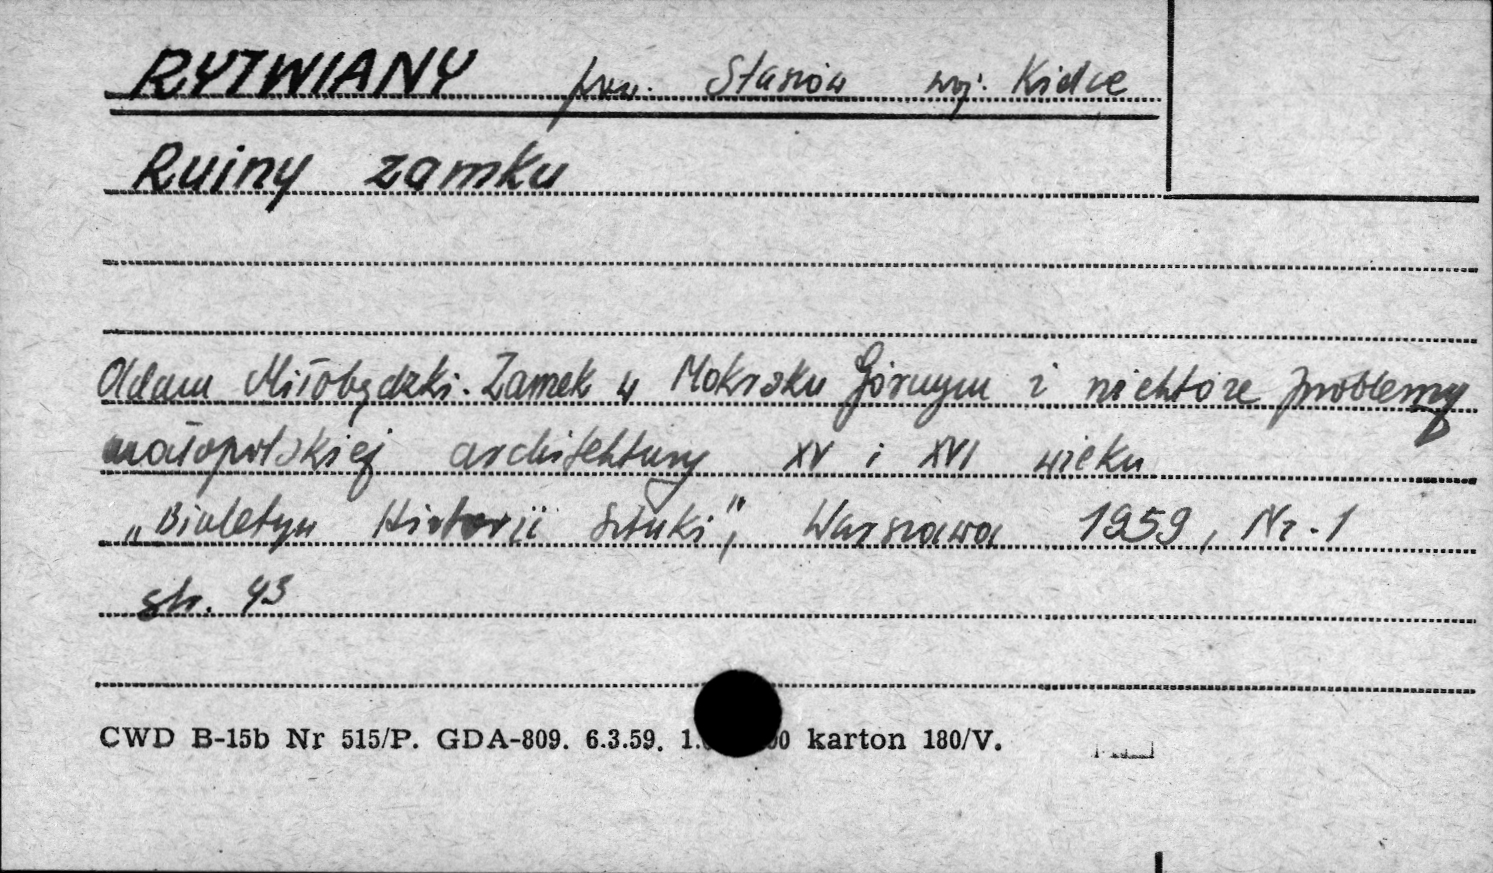 RYTWIANY pow. Staszów woj. Kielce
Ruiny zamku
Adam Miłobędzki. Zamek w Mokrsku Górnym i niektóre problemy
małopolskiej architektury XV i XVI wieku
„Biuletyn Historii Sztuki", Warszawa 1959, Nr. 1
str. 43
CWD B-15b Nr 515/P. GDA-809. 6.3.59. karton 180/V.